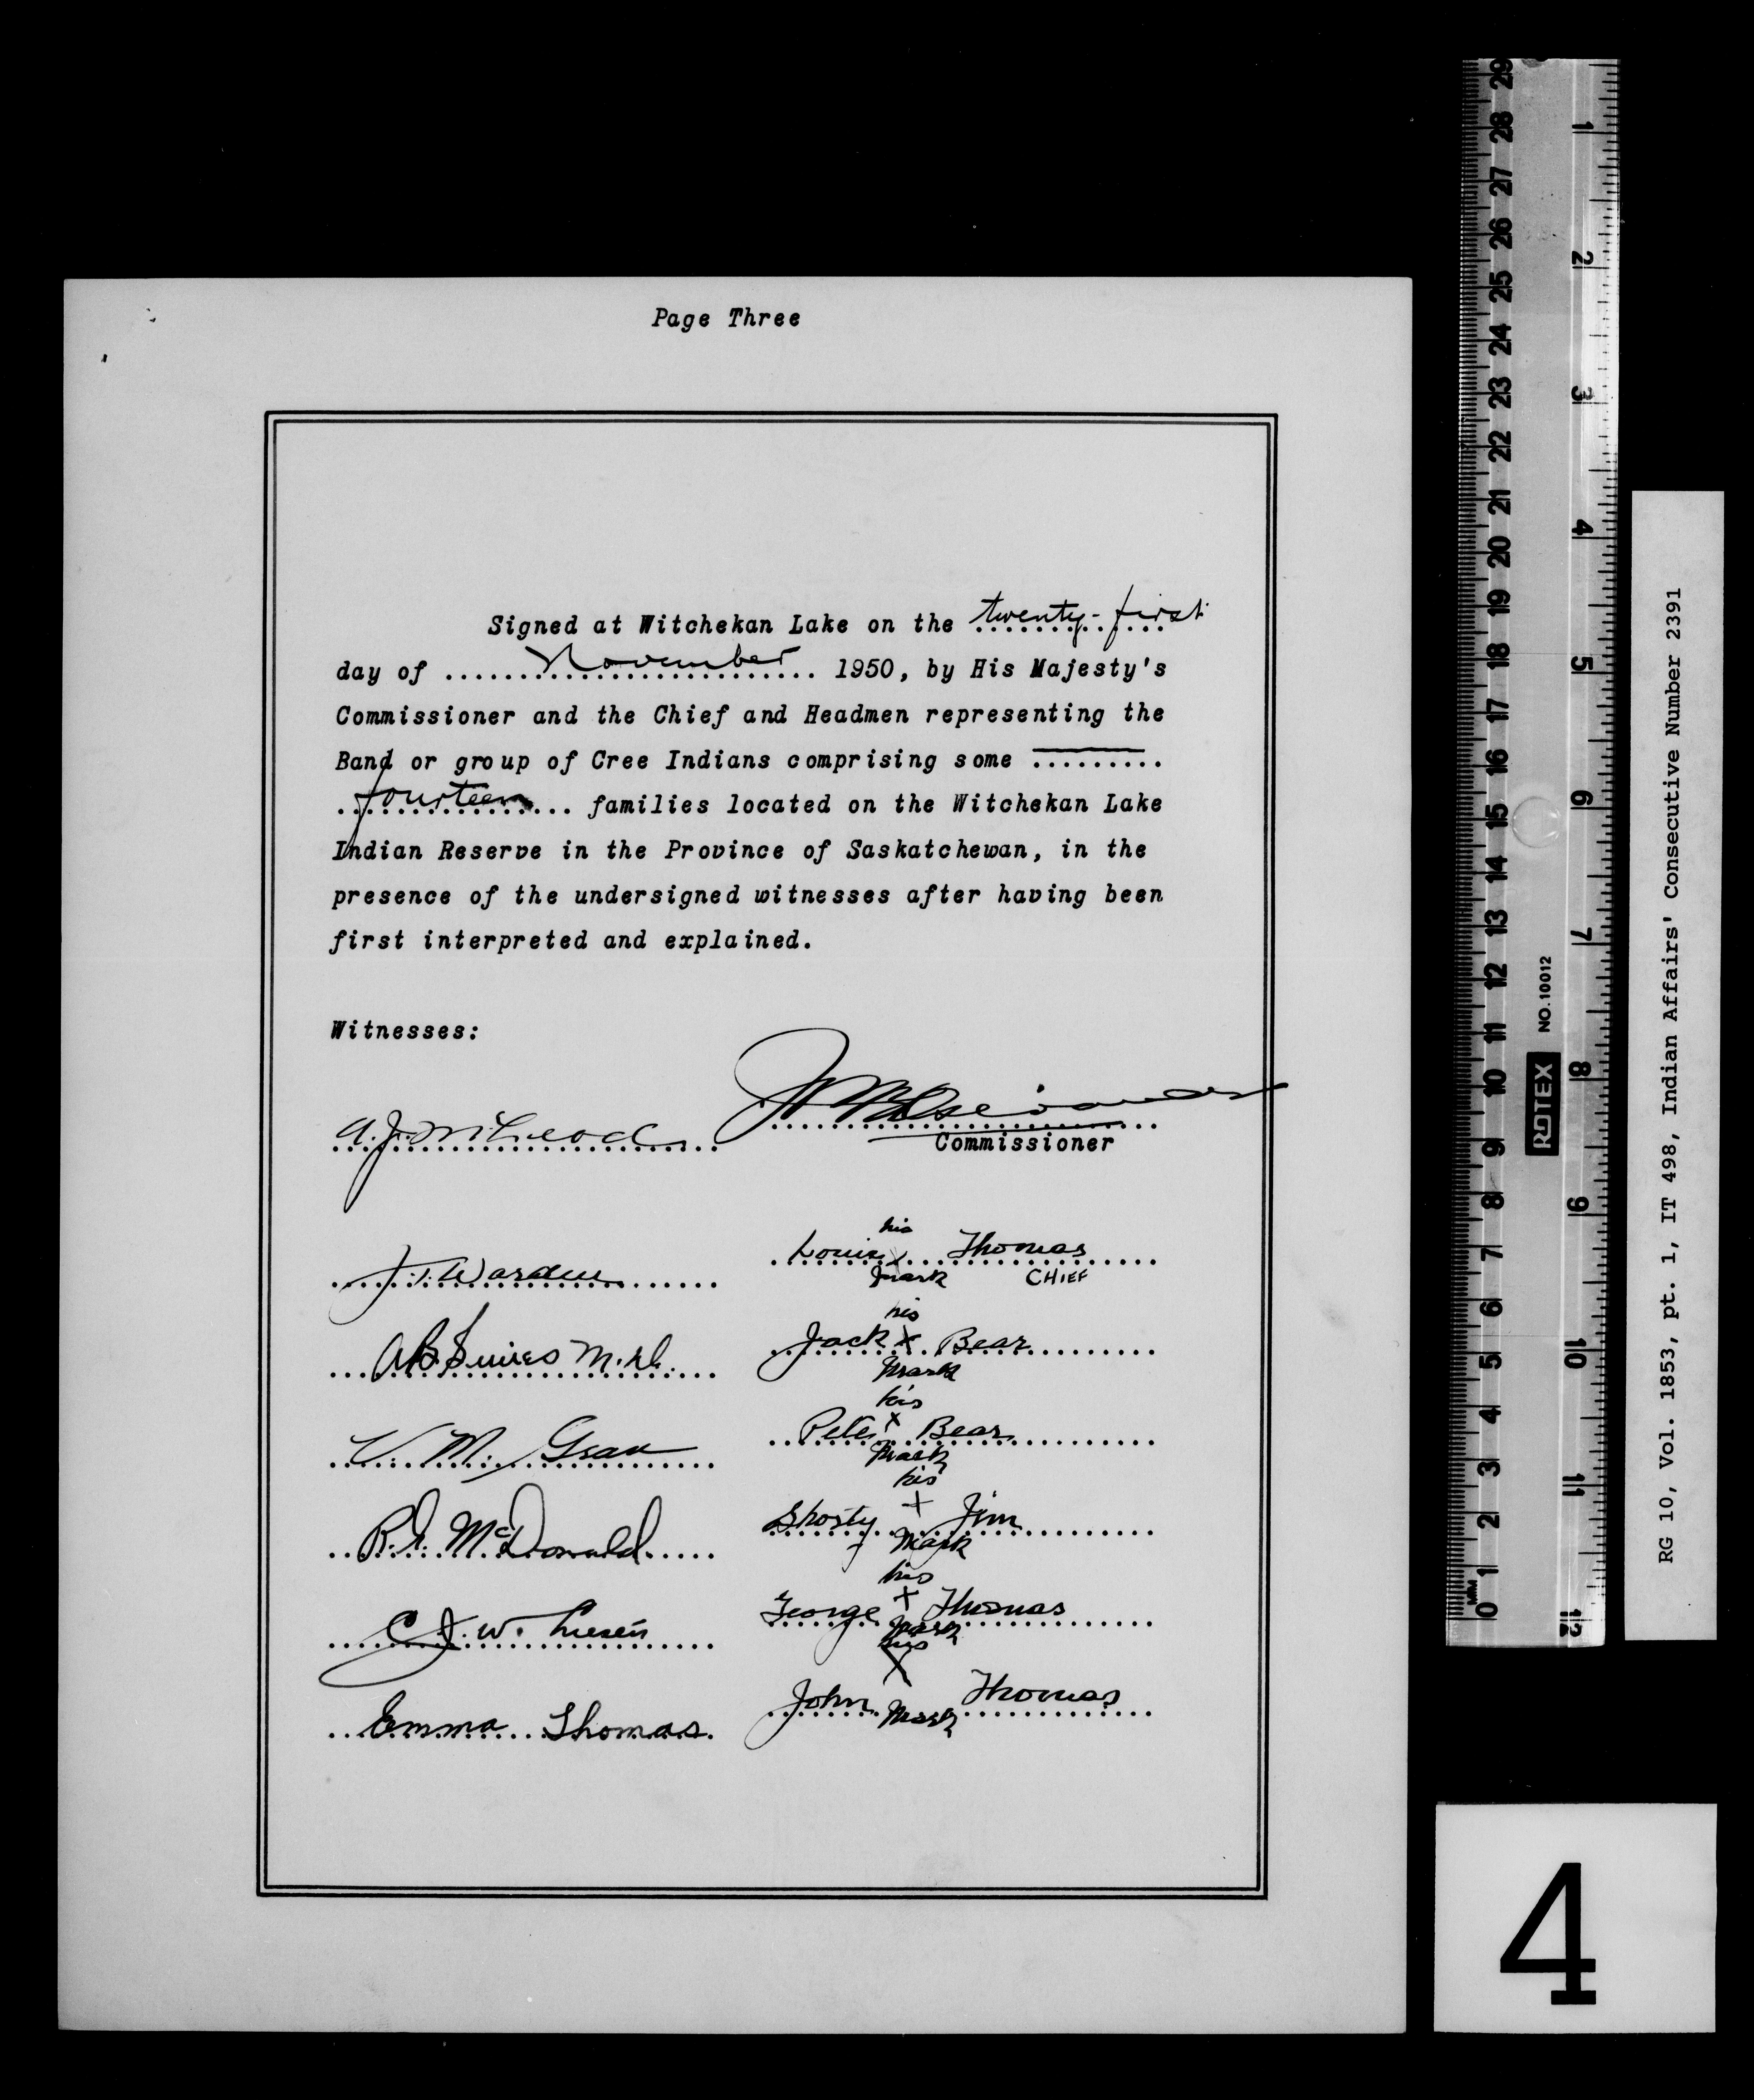 Page Three
Signed at Witchekan Lake on the twenty-first
day of November 1950, by His Majesty's
Commissioner and the Chief and Headmen representing the
Band or group of Cree Indians comprising some .........
fourteen families located on the Witchekan Lake
Indian Reserve in the Province of Saskatchewan, in the
presence of the undersigned witnesses after having been
first interpreted and explained.
Witnesses:
Commissioner
his
Louis x Thomas
mark CHIEF
J. Warden
his
Jack x Bear
mark
his
Pete x Bear
mark
his
Shorty x Jim
mark
R. McDonald
his
George x Thomas
mark
his
x
John Thomas
mark
Emma Thomas
29 28 27 26 25 24 23 22 21 20 19 18 17 16 15 14 13 12 11 10 9 8 7 6 5 4 3 2 1 0
MM
ROTEX NO.10012
1 2 3 4 5 6 7 8 9 10 11 12
RG 10, Vol. 1853, pt. 1, IT 498, Indian Affairs' Consecutive Number 2391
4